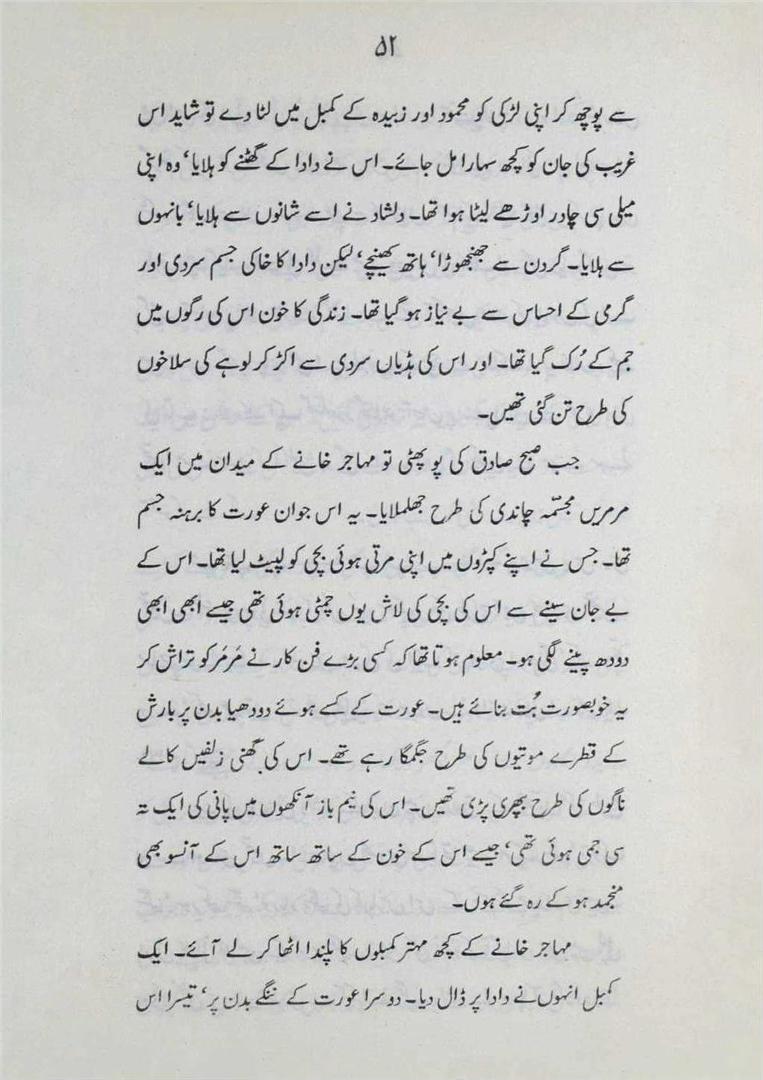 ۵۲
سے پوچھ کر اپنی لڑکی کو محمود اور زبیدہ کے کمبل میں لٹا دے تو شاید اس
غریب کی جان کو کچھ سہارا مل جائے۔ اس نے دادا کے گھٹنے کو ہلایا‘ وہ اپنی
میلی سی چادر اوڑھے لیٹا ہوا تھا۔ دلشاد نے اسے شانوں سے ہلایا‘ بانہوں
سے ہلایا۔ گردن سے جھنجھوڑا‘ ہاتھ کھینچے‘ لیکن دادا کا خاکی جسم سردی اور
گرمی کے احساس سے بے نیاز ہو گیا تھا۔ زندگی کا خون اس کی رگوں میں
جم کے رُک گیا تھا۔ اور اس کی ہڈیاں سردی سے اکڑ کر لوہے کی سلاخوں
کی طرح تن گئی تھیں۔
جب صبح صادق کی پو پھٹی تو مہاجر خانے کے میدان میں ایک
مرمریں مجسّمہ چاندی کی طرح جھلملایا۔ یہ اس جوان عورت کا برہنہ جسم
تھا۔ جس نے اپنے کپڑوں میں اپنی مرتی ہوئی بچی کو لپیٹ لیا تھا۔ اس کے
بے جان سینے سے اس کی بچی کی لاش یوں چمٹی ہوئی تھی جیسے ابھی ابھی
دودھ پینے لگی ہو۔ معلوم ہوتا تھا کہ کسی بڑے فن کار نے مَرمَر کو تراش کر
یہ خوبصورت بُت بنائے ہیں۔ عورت کے کسے ہوئے دودھیا بدن پر بارش
کے قطرے موتیوں کی طرح جگمگا رہے تھے۔ اس کی گھنی زلفیں کالے
ناگوں کی طرح بپھری پڑی تھیں۔ اس کی نیم باز آنکھوں میں پانی کی ایک تہ
سی جمی ہوئی تھی‘ جیسے اس کے خون کے ساتھ ساتھ اس کے آنسو بھی
منجمد ہو کے رہ گئے ہوں۔
مہاجر خانے کے کچھ مہتر کمبلوں کا پلندا اٹھا کر لے آئے۔ ایک
کمبل انہوں نے دادا پر ڈال دیا۔ دوسرا عورت کے ننگے بدن پر‘ تیسرا اس